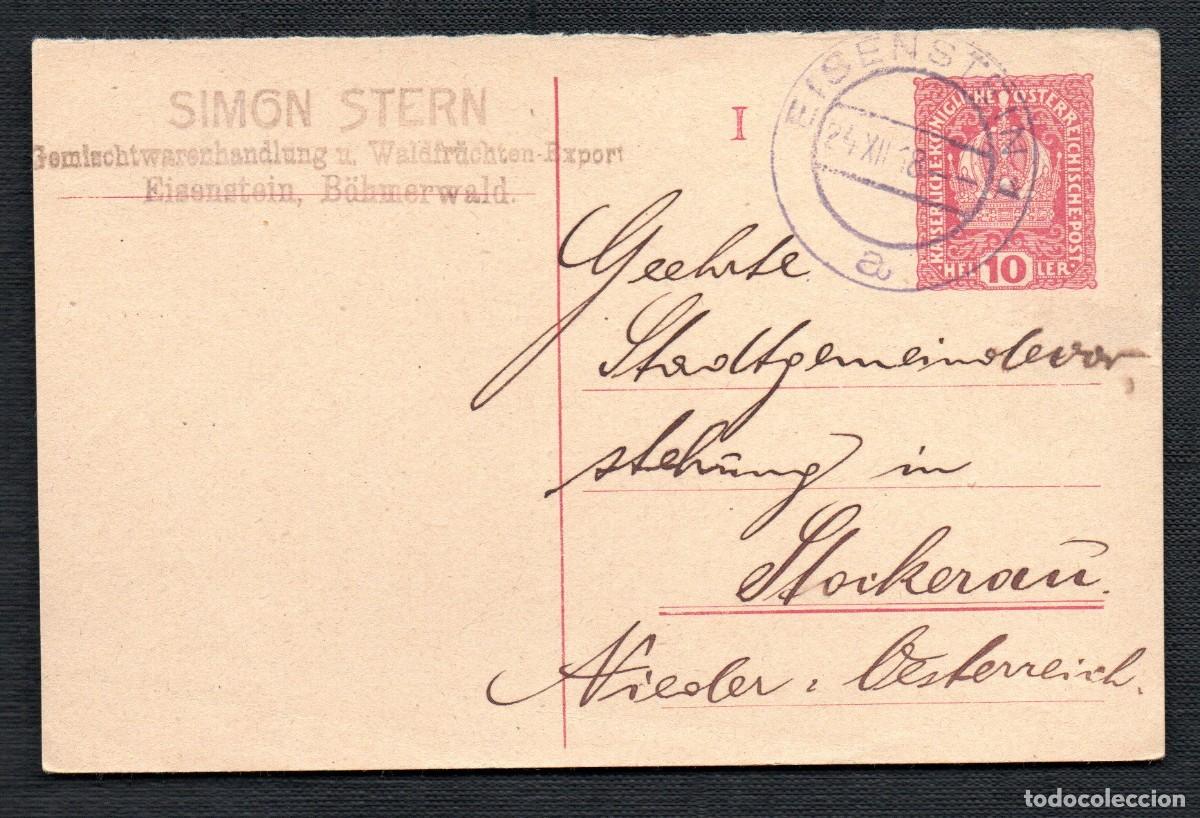 SIMON STERN
Gemischtwarenhandlung u. Waldfrüchten-Export
Eisenstein, Böhmerwald.
I
EISENSTEIN
24.XII.18
a
KAISERLICHE·KÖNIGLICHE ÖSTERREICHISCHE·POST·
HELLER
10
Geehrte
Stadtgemeindevor
stehung in
Stockerau.
Nieder-Oesterreich.
todocoleccion